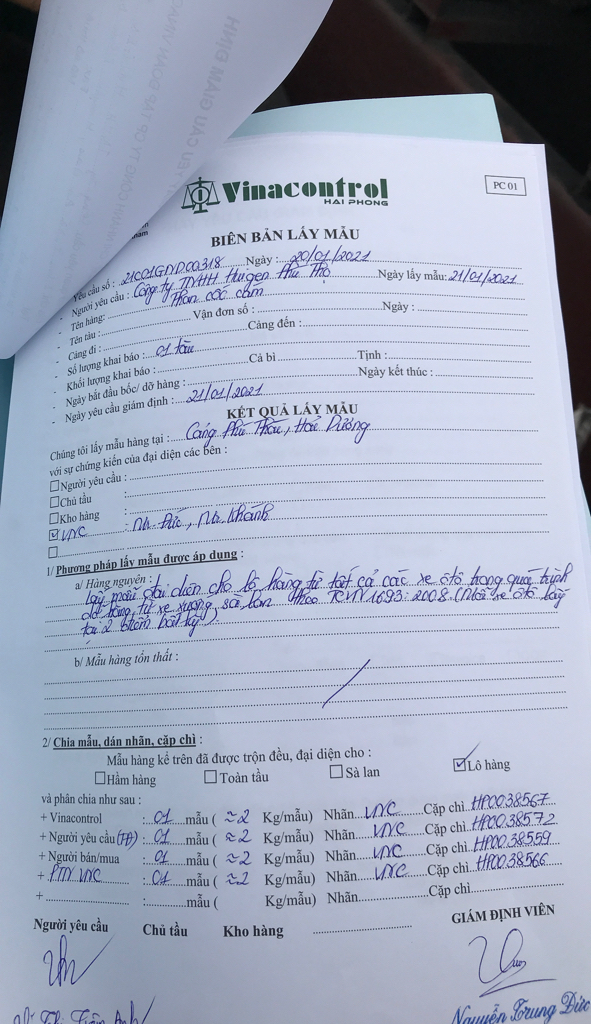 YÊU CẦU GIÁM ĐỊNH
Vinacontrol
HAI PHONG
PC 01
BIÊN BẢN LẤY MẪU
Yêu cầu số : 21C01GND00318 Ngày : 20/01/2021
- Người yêu cầu : Công ty TNHH Phú Thọ Ngày lấy mẫu: 21/01/2021
- Tên hàng: Than cốc cám
- Tên tàu : Vận đơn số : Ngày :
- Cảng đi : Cảng đến :
- Số lượng khai báo : 01 tàu
- Khối lượng khai báo : Cả bì Tịnh :
- Ngày bắt đầu bốc/ dỡ hàng : Ngày kết thúc :
- Ngày yêu cầu giám định : 21/01/2021
KẾT QUẢ LẤY MẪU
Chúng tôi lấy mẫu hàng tại : Cảng Phú Thái, Hải Dương
với sự chứng kiến của đại diện các bên :
☐Người yêu cầu :
☐Chủ tầu :
☐Kho hàng :
☑VNC : Mr Đức, Mr Khánh
☐
1/ Phương pháp lấy mẫu được áp dụng :
a/ Hàng nguyên : Lấy mẫu đại diện cho lô hàng từ tất cả các xe ôtô trong quá trình
dỡ hàng từ xe xuống, sà lan theo TCVN 1693:2008. (Mỗi xe ôtô lấy
tại 2 điểm bất kỳ)
b/ Mẫu hàng tổn thất :
2/ Chia mẫu, dán nhãn, cặp chì :
Mẫu hàng kể trên đã được trộn đều, đại diện cho :
☐Hầm hàng ☐Toàn tầu ☐Sà lan ☑Lô hàng
và phân chia như sau :
+ Vinacontrol : 01 mẫu ( ≈2 Kg/mẫu) Nhãn VNC Cặp chì HP0038567
+ Người yêu cầu (TP) : 01 mẫu ( ≈2 Kg/mẫu) Nhãn VNC Cặp chì HP0038572
+ Người bán/mua : 01 mẫu ( ≈2 Kg/mẫu) Nhãn VNC Cặp chì HP0038559
+ PTN VNC : 01 mẫu ( ≈2 Kg/mẫu) Nhãn VNC Cặp chì HP0038566
+ : mẫu ( Kg/mẫu) Nhãn Cặp chì
Người yêu cầu Chủ tầu Kho hàng GIÁM ĐỊNH VIÊN
Nguyễn Trung Đức